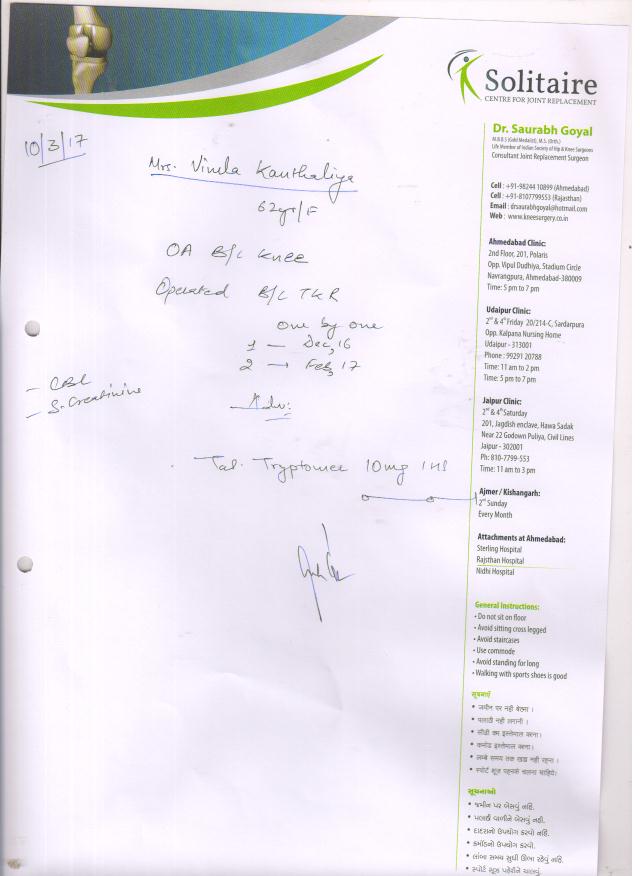 Solitaire
CENTRE FOR JOINT REPLACEMENT
Dr. Saurabh Goyal
M.B.B.S (Gold Medalist), M.S. (Orth.)
Life Member of Indian Society of Hip & Knee Surgeons
Consultant Joint Replacement Surgeon
Cell : +91-98244 10899 (Ahmedabad)
Cell : +91-8107799553 (Rajasthan)
Email : drsaurabhgoyal@hotmail.com
Web : www.kneesurgery.co.in
Ahmedabad Clinic:
2nd Floor, 201, Polaris
Opp. Vipul Dudhiya, Stadium Circle
Navrangpura, Ahmedabad-380009
Time: 5 pm to 7 pm
Udaipur Clinic:
2nd & 4th Friday 20/214-C, Sardarpura
Opp. Kalpana Nursing Home
Udaipur - 313001
Phone : 99291 20788
Time: 11 am to 2 pm
Time: 5 pm to 7 pm
Jaipur Clinic:
2nd & 4th Saturday
201, Jagdish enclave, Hawa Sadak
Near 22 Godown Puliya, Civil Lines
Jaipur - 302001
Ph: 810-7799-553
Time: 11 am to 3 pm
Ajmer / Kishangarh:
2nd Sunday
Every Month
Attachments at Ahmedabad:
Sterling Hospital
Rajsthan Hospital
Nidhi Hospital
General Instructions:
• Do not sit on floor
• Avoid sitting cross legged
• Avoid staircases
• Use commode
• Avoid standing for long
• Walking with sports shoes is good
सूचनाएँ
• जमीन पर नही बेठना ।
• पलाठी नही लगानी ।
• सीढी का इस्तेमाल करना।
• कमोड इस्तेमाल करना।
• लम्बे समय तक खडा नही रहना ।
• स्पोर्ट शूज पहनके चलना चाहिये।
સૂચનાઓ
• જમીન પર બેસવું નહિ.
• પલાઠી વાળીને બેસવું નહી.
• દાદરાનો ઉપયોગ કરવો નહિ.
• કમોડનો ઉપયોગ કરવો.
• લાંબા સમય સુધી ઊભા રહેવું નહિ.
• સ્પોર્ટ શૂઝ પહેરીને ચાલવું.
10/3/17
Mrs. Vimla Kanthaliya
62yr/F
OA B/L Knee
Operated B/L TKR
one by one
1 — Dec, 16
2 → Feb, 17
- CBC
- S. Creatinine
Adv:
Tab. Tryptomer 10mg 1 HS